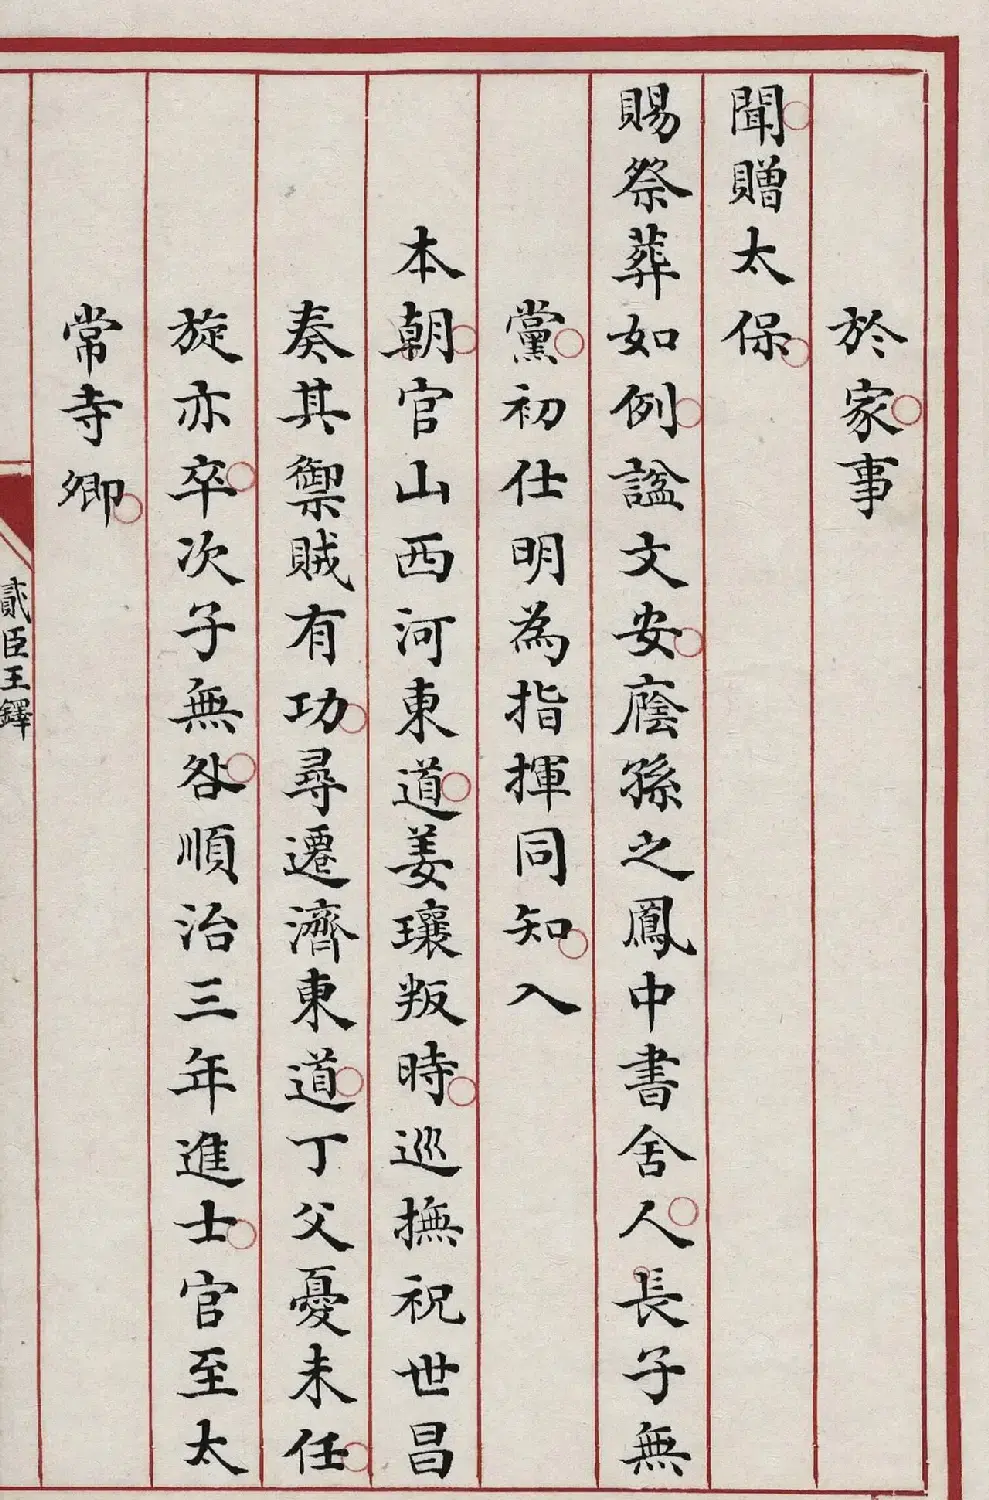 於家事
聞贈太保
賜祭葬如例諡文安廕孫之鳳中書舍人長子無
黨初仕明為指揮同知入
本朝官山西河東道姜瓖叛時巡撫祝世昌
奏其禦賊有功尋遷濟東道丁父憂未任
旋亦卒次子無咎順治三年進士官至太
常寺卿
貳臣王鐸